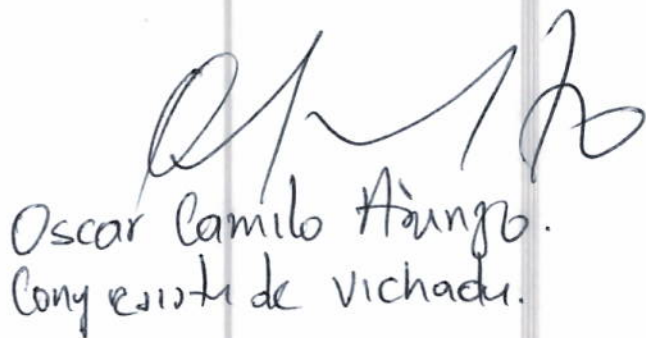 Oscar Camilo Arango.
Congresista de Vichada.